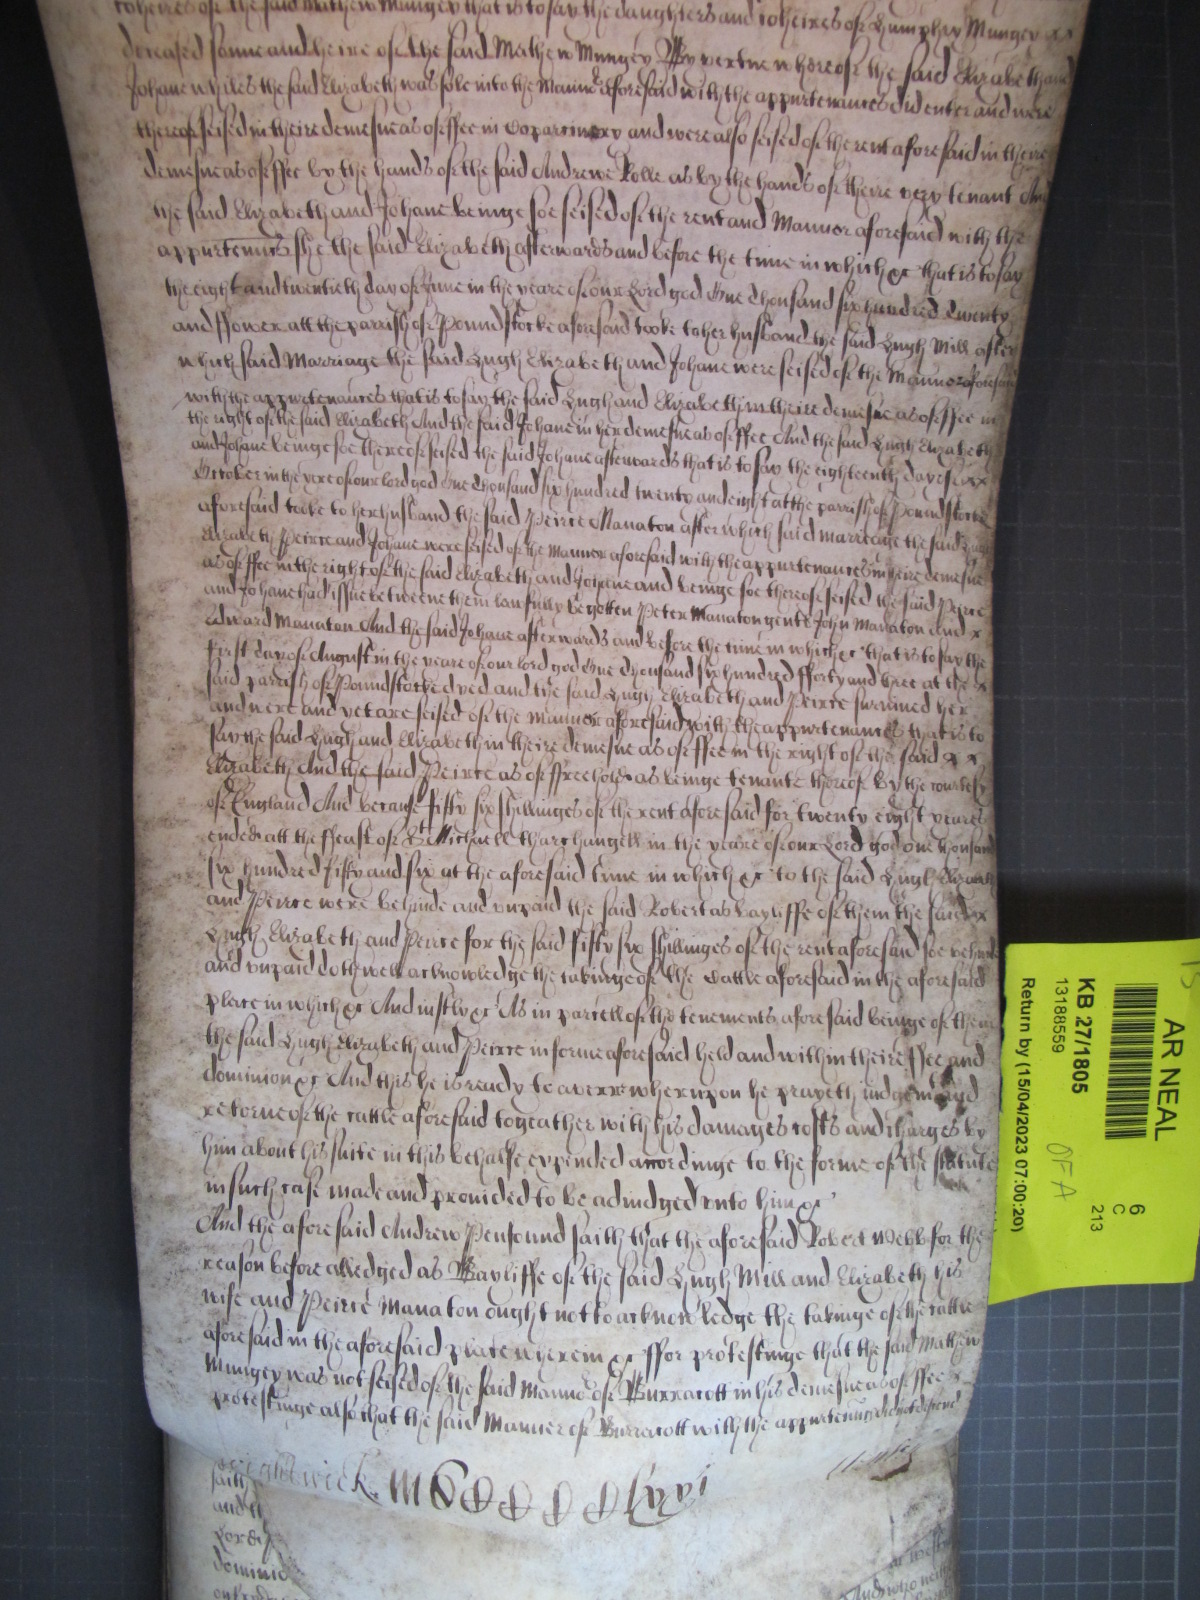 coheires of the said Mathew Mungey that is to say the daughters and coheires of Humphry Mungey xx
deceased sonne and heire of the said Mathew Mungey By vertue whereof the said Elizabeth and
Johane whiles the said Elizabeth was sole into the Mannor aforesaid with the appurtenances did enter and were
thereof seised in theire demesne as of ffee in Coparcinery and were also seised of the rent aforesaid in theire
demesne as of ffee by the hands of the said Andrewe Rolle as by the hands of theire very tenant And
the said Elizabeth and Johane beinge soe seised of the rent and Mannor aforesaid with the
appurtenncs she the said Elizabeth afterwards and before the time in which &c that is to say
the eight and twentieth day of June in the yeare of our Lord god One thousand six hundred twenty
and ffower att the parrish of Poundstocke aforesaid tooke to her husband the said Hugh Mill after
which said Marriage the said Hugh Elizabeth and Johane were seised of the Mannor aforesaid
with the appurtenances that is to say the said Hugh and Elizabeth in theire demesne as of ffee in
the right of the said Elizabeth And the said Johane in her demesne as of ffee And the said Hugh Elizabeth
and Johane beinge soe thereof seised the said Johane afterwards that is to say the eighteenth day of xx
October in the yere of our lord god One thousand six hundred twenty and eight at the parrish of Poundstocke
aforesaid tooke to her husband the said Peirce Manaton after which said marriage the said Hugh
Elizabeth Peirce and Johane were seised of the Mannor aforesaid with the appurtenances in theire demesne
as of ffee in the right of the said Elizabeth and Johane and beinge soe thereof seised the said Peirce
and Johane had issue betweene them lawfully begotten Peter Manaton gent John Manaton And x
Edward Manaton And the said Johane afterwards and before the time in which &c that is to say the
first day of August in the yeare of our lord god One thousand six hundred fforty and three at the x
said parrish of Poundstocke dyed and the said Hugh Elizabeth and Peirce survived her
and were and yet are seised of the Mannor aforesaid with the appurtenances that is to
say the said Hugh and Elizabeth in theire demesne as of ffee in the right of the said x x
Elizabeth And the said Peirce as of ffreehold as beinge tenante thereof by the courtesy
of England And because fifty six shillinges of the rent aforesaid for twenty eight yeares
ended att the ffeast of St Michaell tharchangell in the yeare of our Lord god one thousand
six hundred fifty and six at the aforesaid time in which &c to the said Hugh Elizabeth
and Peirce were behinde and unpaid the said Robert as bayliffe of them the said x
Hugh Elizabeth and Peirce for the said fifty six shillinges of the rent aforesaid soe behinde
and unpaid doth well acknowledge the takinge of the Cattle aforesaid in the aforesaid
place in which &c And iustly &c As in parcell of the tenements aforesaid beinge of them
the said Hugh Elizabeth and Peirce in forme aforesaid held and within theire ffee and
dominion &c And this he is ready to averre whereupon he prayeth iudgemt and
retorne of the cattle aforesaid togeather with his damages costs and charges by
him about his suite in this behalfe expended accordinge to the forme of the statute
in such case made and provided to be adiudged unto him &c
And the aforesaid Andrew Penfound saith that the aforesaid Robert Webb for the
reason before alledged as Bayliffe of the said Hugh Mill and Elizabeth his
wife and Peirce Manaton ought not to acknowledge the takinge of the cattle
aforesaid in the aforesaid place wherein &c ffor protestinge that the said Mathew
Mungey was not seised of the said Mannor of Burracott in his demesne as of ffee x
protestinge also that the said Mannor of Burracott with the appurtennces did not descend
saith
and
Lords
dominio
AR NEAL
KB 27/1805
13188559
Return by (15/04/2023 07:00:20)
6
C
213
OF A